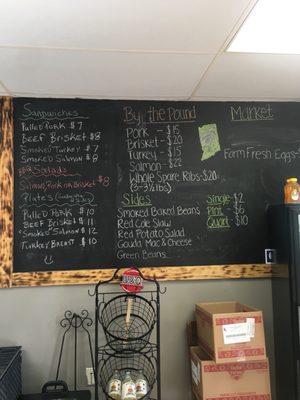 Sandwiches
Pulled Pork $7
Beef Brisket $8
Smoked Turkey $7
Smoked Salmon $8
Salads
Salmon, Pork or Brisket $8
Plates
Pulled Pork $10
Beef Brisket $11
Smoked Salmon $12
Turkey Breast $10
By the Pound
Pork - $15
Brisket - $20
Turkey - $15
Salmon - $22
Whole Spare Ribs - $20
(3-3½lbs)
Sides
Smoked Baked Beans
Red Cole Slaw
Red Potato Salad
Gouda Mac & Cheese
Green Beans
Single - $2
Pint - $6
Quart - $10
Market
Farm Fresh Eggs-